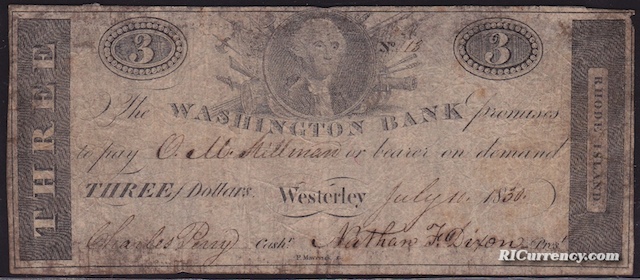 THREE
3
No 12
3
RHODE ISLAND
The WASHINGTON BANK promises
to pay O. M. Stillman or bearer on demand
THREE Dollars. Westerley July 11. 1830.
Charles Perry Cashr. Nathan F. Dixon Prest.
RICurrency.com